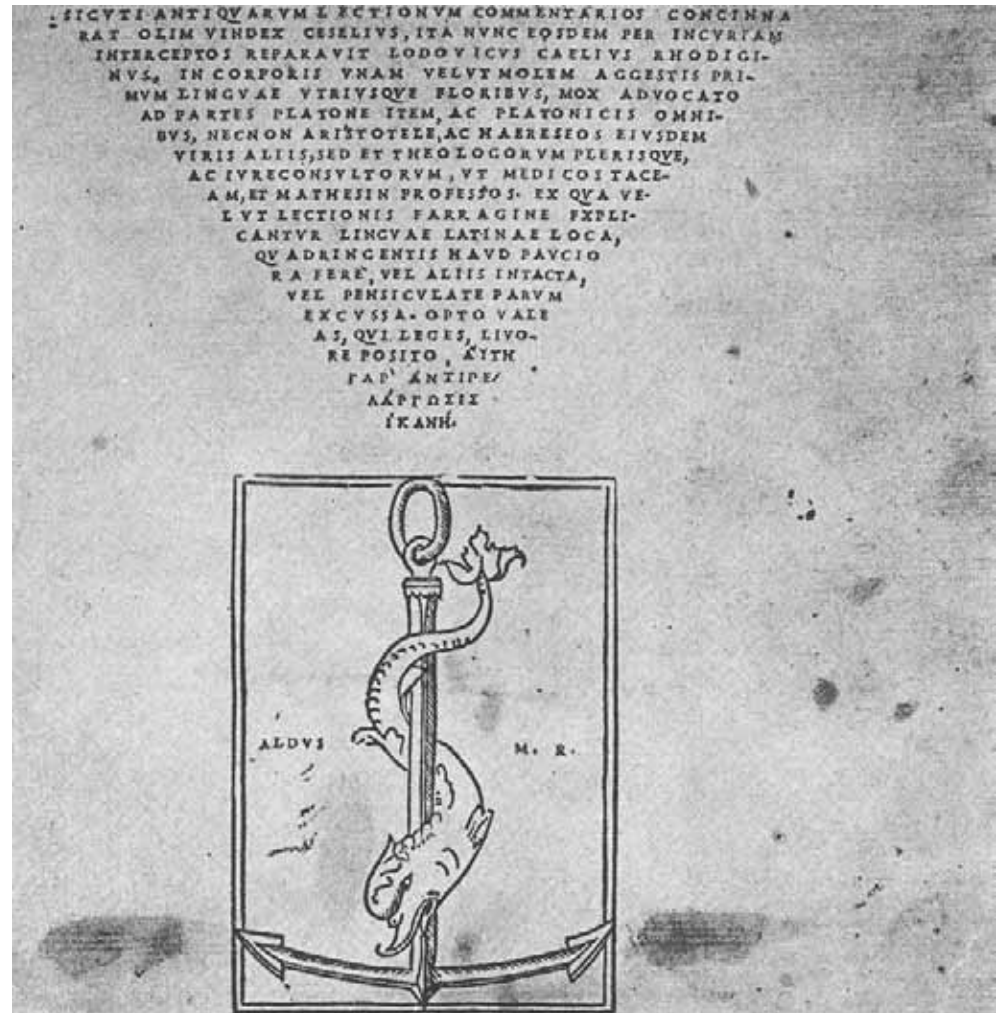 SICVTI ANTIQVARVM LECTIONVM COMMENTARIOS CONCINNA
RAT OLIM VINDEX CESELIVS, ITA NVNC EOSDEM PER INCVRIAM
INTERCEPTOS REPARAVIT LODOVICVS CAELIVS RHODIGI-
NVS, IN CORPORIS VNAM VELVT MOLEM AGGESTIS PRI-
MVM LINGVAE VTRIVSQVE FLORIBVS, MOX ADVOCATO
AD PARTES PLATONE ITEM, AC PLATONICIS OMNI-
BVS, NECNON ARISTOTELE, AC HAERESEOS EIVSDEM
VIRIS ALIIS, SED ET THEOLOGORVM PLERISQVE,
AC IVRECONSVLTORVM, VT MEDICOS TACE-
AM, ET MATHESIN PROFESSOS. EX QVA VE-
LVT LECTIONIS FARRAGINE EXPLI-
CANTVR LINGVAE LATINAE LOCA,
QVADRINGENTIS HAVD PAVCIO
RA FERE, VEL ALIIS INTACTA,
VEL PENSICVLATE PARVM
EXCVSSA. OPTO VALE
AS, QVI LEGES, LIVO-
RE POSITO, ἈΥΤΗ
ΓΑΡ̀ ἈΝΤΙΠΕ/
ΛΆΡΓΩΣΙΣ
ἹΚΑΝΉ.
ALDVS M. R.